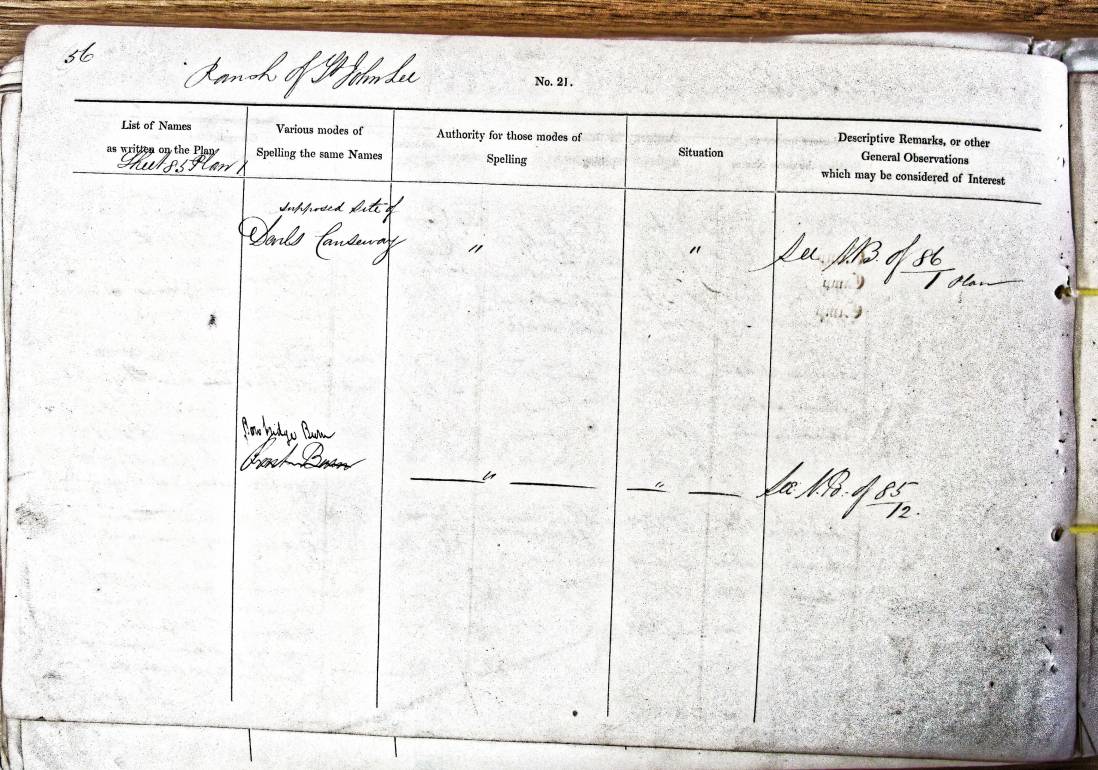 56
Parish of St John Lee
No. 21.
List of Names
as written on the Plan
Sheet 85 Plan 1
Various modes of
Spelling the same Names
Authority for those modes of
Spelling
Situation
Descriptive Remarks, or other
General Observations
which may be considered of Interest
supposed site of
Devils Causeway
"
"
See N.B. of 86
1 Plan
Bow bridge Burn
Burn
"
"
See N.B. of 85
12.